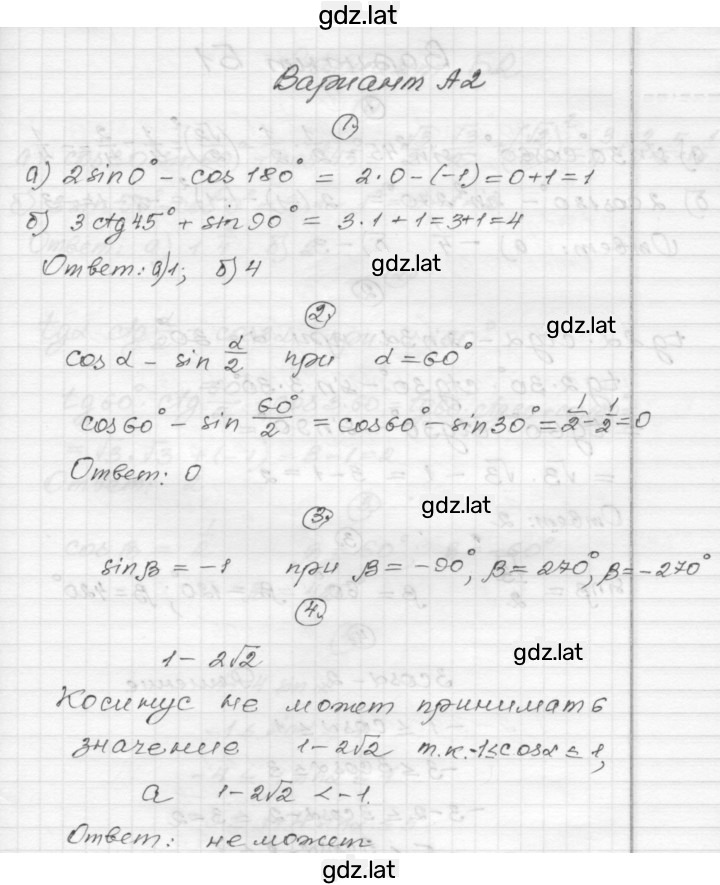 gdz.lat
Вариант А2
1.
а) 2sin0° - cos 180° = 2·0-(-1)=0+1=1
б) 3ctg45° + sin90° = 3·1+1=3+1=4
Ответ: а)1; б)4
gdz.lat
2.
gdz.lat
cosα - sin α/2 при α=60°
cos60° - sin 60°/2 = cos60° - sin30° = 1/2 - 1/2 = 0
Ответ: 0
gdz.lat
3.
sinβ = -1 при β = -90°, β = 270°, β = -270°
4.
1 - 2√2
gdz.lat
Косинус не может принимать
значение 1-2√2 т.к. -1≤cosα≤1,
а 1-2√2 < -1.
Ответ: не может.
gdz.lat